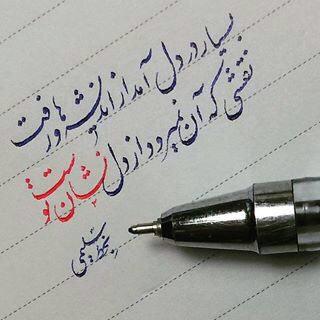 بسیار در دل آمد از اندیشه‌ها و رفت
نقشی که آن نمیرود از دل نشان توست
بخط سلیمی